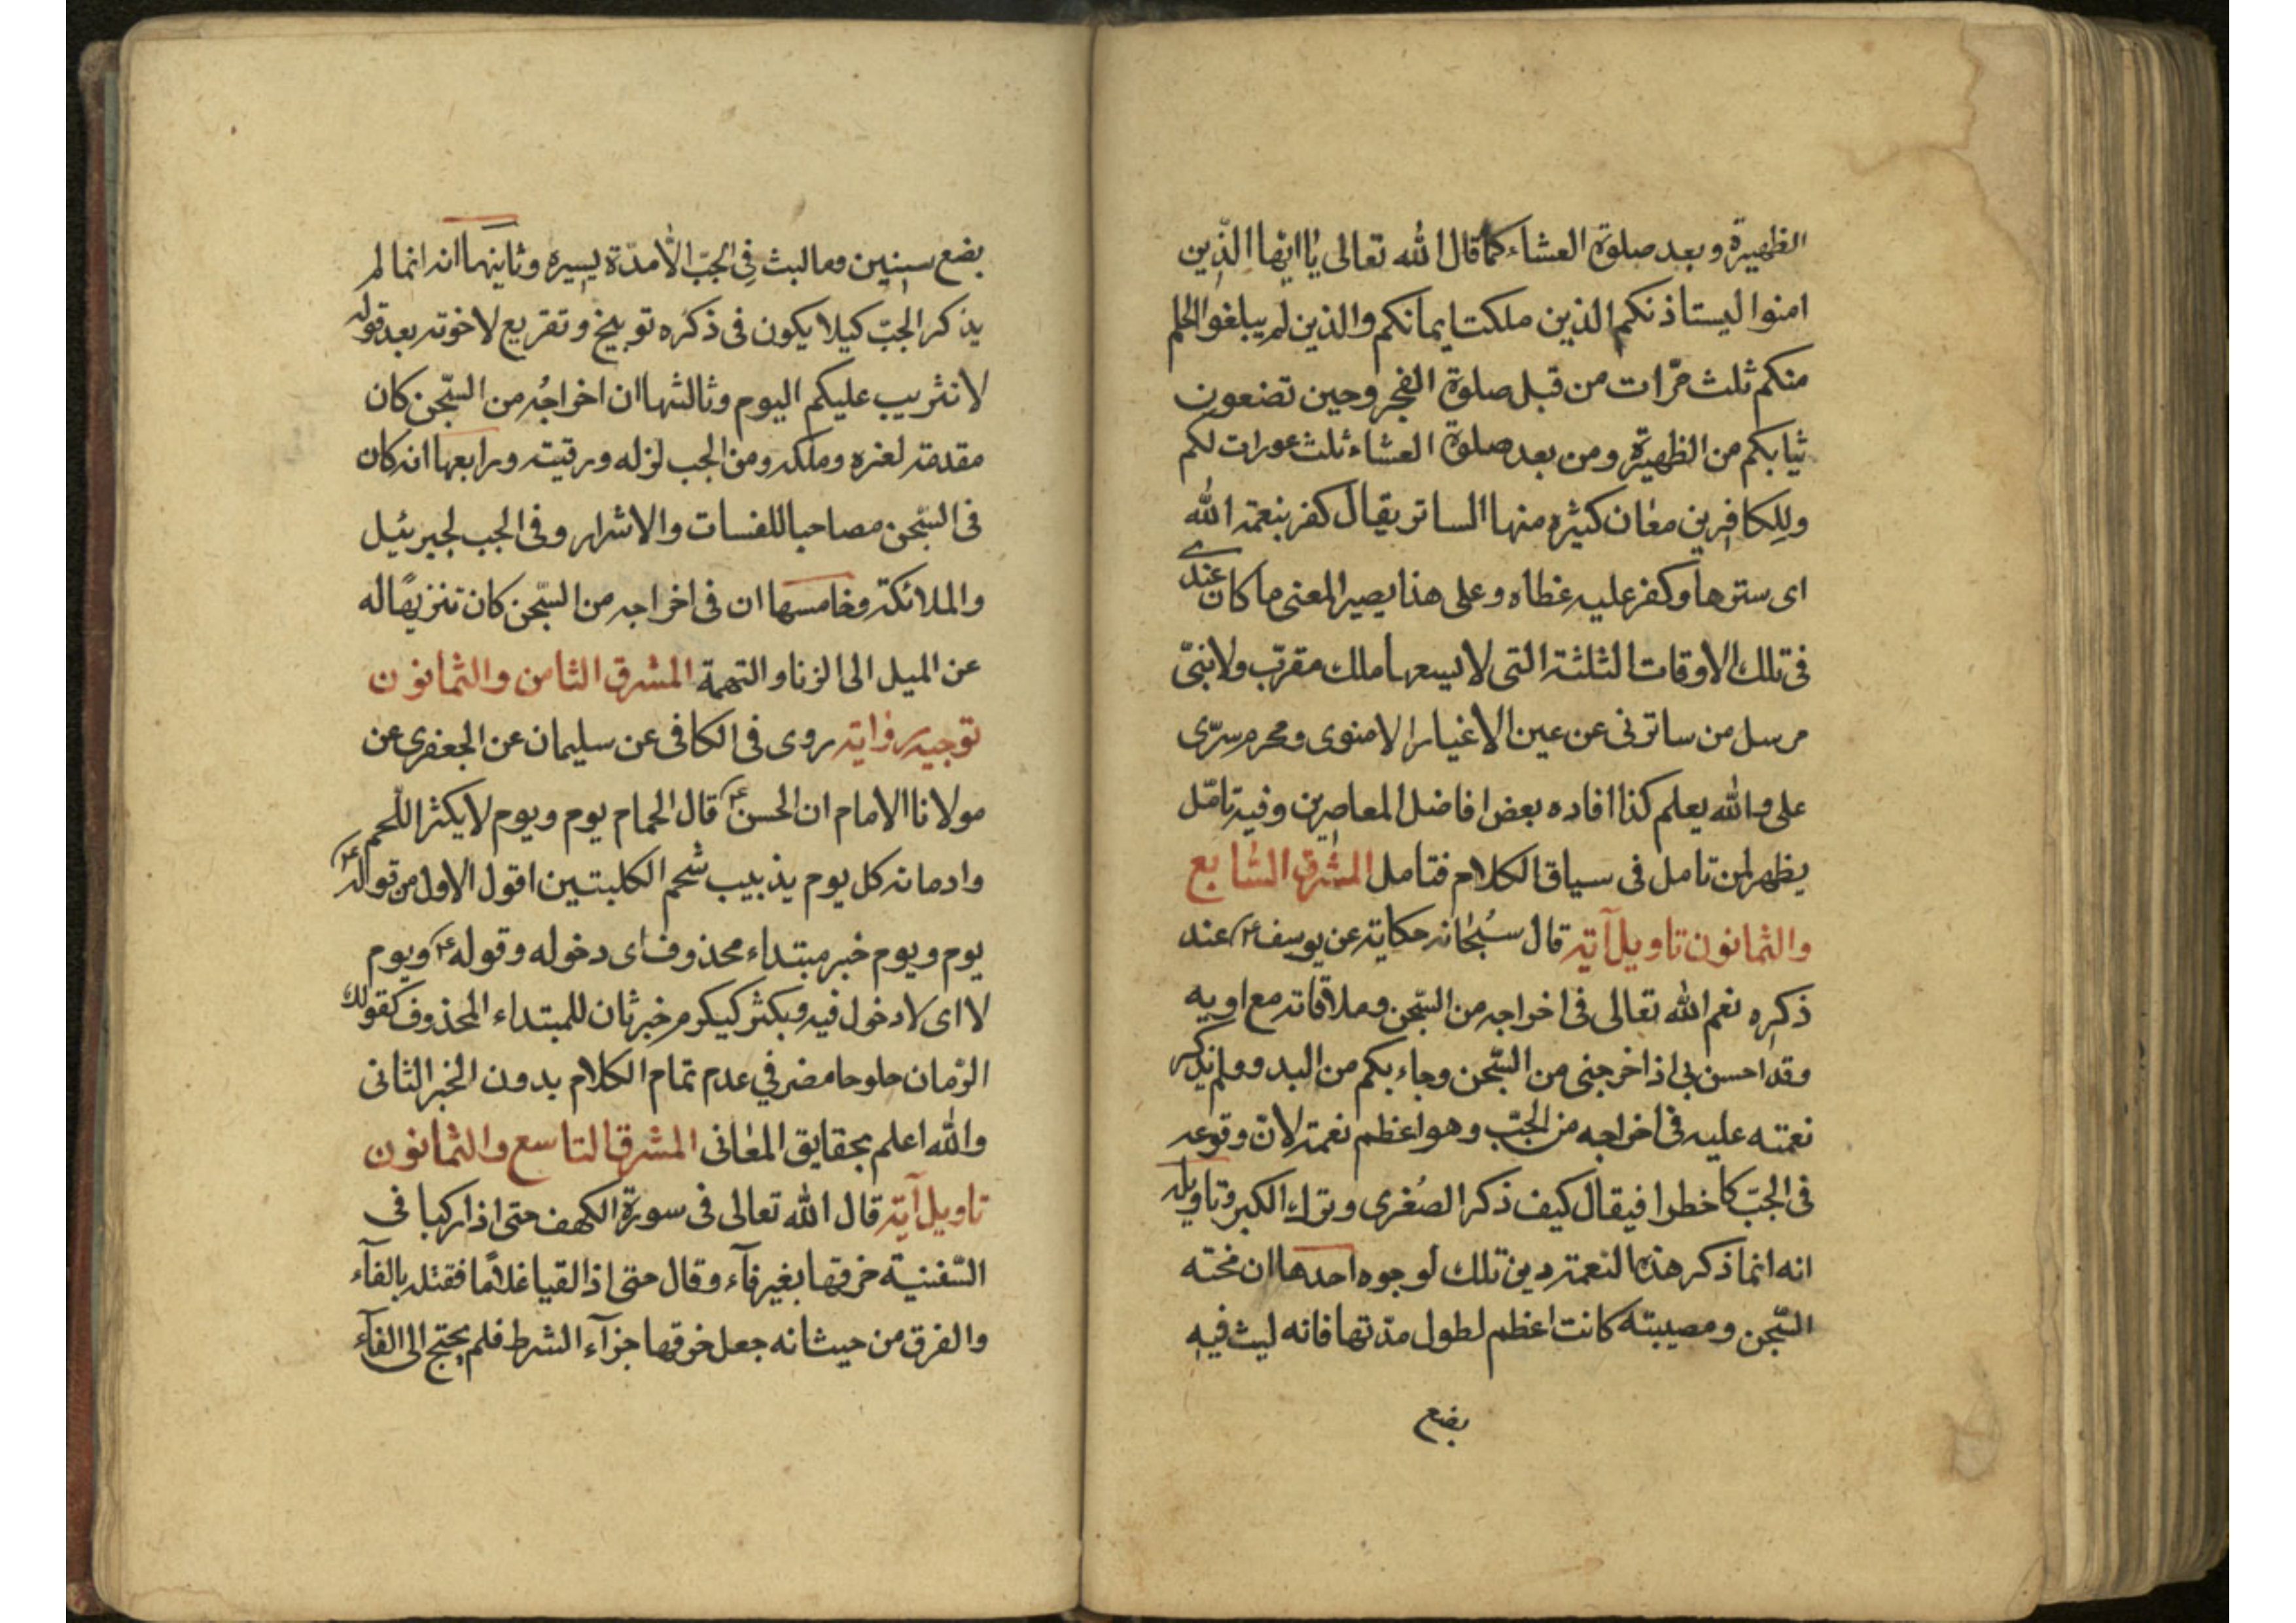 الظهيرة وبعد صلوة العشاء كما قال الله تعالى يا ايها الذين
امنوا ليستاذنكم الذين ملكت ايمانكم والذين لم يبلغوا الحلم
منكم ثلث مرّات من قبل صلوة الفجر وحين تضعون
ثيابكم من الظهيرة ومن بعد صلوة العشاء ثلث عورات لكم
وللكافرين معان كثيره منها الساتر يقال كفر بنعمة الله
اى سترها وكفر عليه غطاه وعلى هذا يصير المعنى ما كان عندى
فى تلك الاوقات الثلثة التى لا يسعها ملك مقرّب ولا نبىّ
مرسل من ساترنى عن عين الاغيار الا منوى ومحرم سرّى
على والله يعلم كذا افاده بعض افاضل المعاصرين وفيه تامّل
يظهر لمن تامل فى سياق الكلام فتامل المشرق السّابع
والثمانون تاويل آية قال سبحانه حكاية عن يوسف ع عند
ذكره نعم الله تعالى فى اخراجه من السّجن وملاقاته مع اويه
وقد احسن بى اذ اخرجنى من السّجن وجاء بكم من البدو ولم يذكر
نعمته عليه فى اخراجه من الجبّ وهو اعظم نعمة لانّ وقوعه
فى الجبّ كا خطرا فيقال كيف ذكر الصُغرى وترك الكبر وتاويله
انه انما ذكر هذه النعمة دين تلك لوجوه احدها ان محنته
السّجن ومصيبته كانت اعظم لطول مدّتها فانه لبث فيه
بضع
بضع سنين وما لبث فى الجبّ الّا مدّة يسيره وثانيها انه انما لم
يذكر الجبّ كيلا يكون فى ذكره توبيخ وتقريع لاخوته بعد قوله
لا تثريب عليكم اليوم وثالثها ان اخراجُه من السّجن كان
مقدمة لغره وملكه ومن الجب لزله ورقيته ورابعها انه كان
فى السّجن مصاحبا للفسات والاشرار وفى الجب لجبرئيل
والملائكة وخامسها ان فى اخراجه من السّجن كان تنزيهًا له
عن الميل الى الزنا والتهمة المشرق الثامن والثمانون
توجيه رواية روى فى الكافى عن سليمان عن الجعفرى عن
مولانا الامام ان الحسن ع قال الحمام يوم ويوم لا يكثر اللّحم
وادمانه كل يوم يذبيب شحم الكليتين اقول الاول من قوله ع
يوم ويوم خبر مبتداء محذوف اى دخوله وقوله ع ويوم
لا اى لا دخول فيه ويكثر كيكرم خبر ثان للمبتداء المحذوف كقولك
الرّمان حلو حامض في عدم تمام الكلام بدون الخبر الثانى
والله اعلم بحقايق المعانى المشرق التاسع والثمانون
تاويل آية قال الله تعالى فى سورة الكهف حتى اذا ركبا فى
السّفينة خرقها بغير فآء وقال حتى اذا لقيا غلامًا فقتله بالفآء
والفرق من حيث انه جعل خرقها جزآء الشرط فلم يحتج الى الفآء